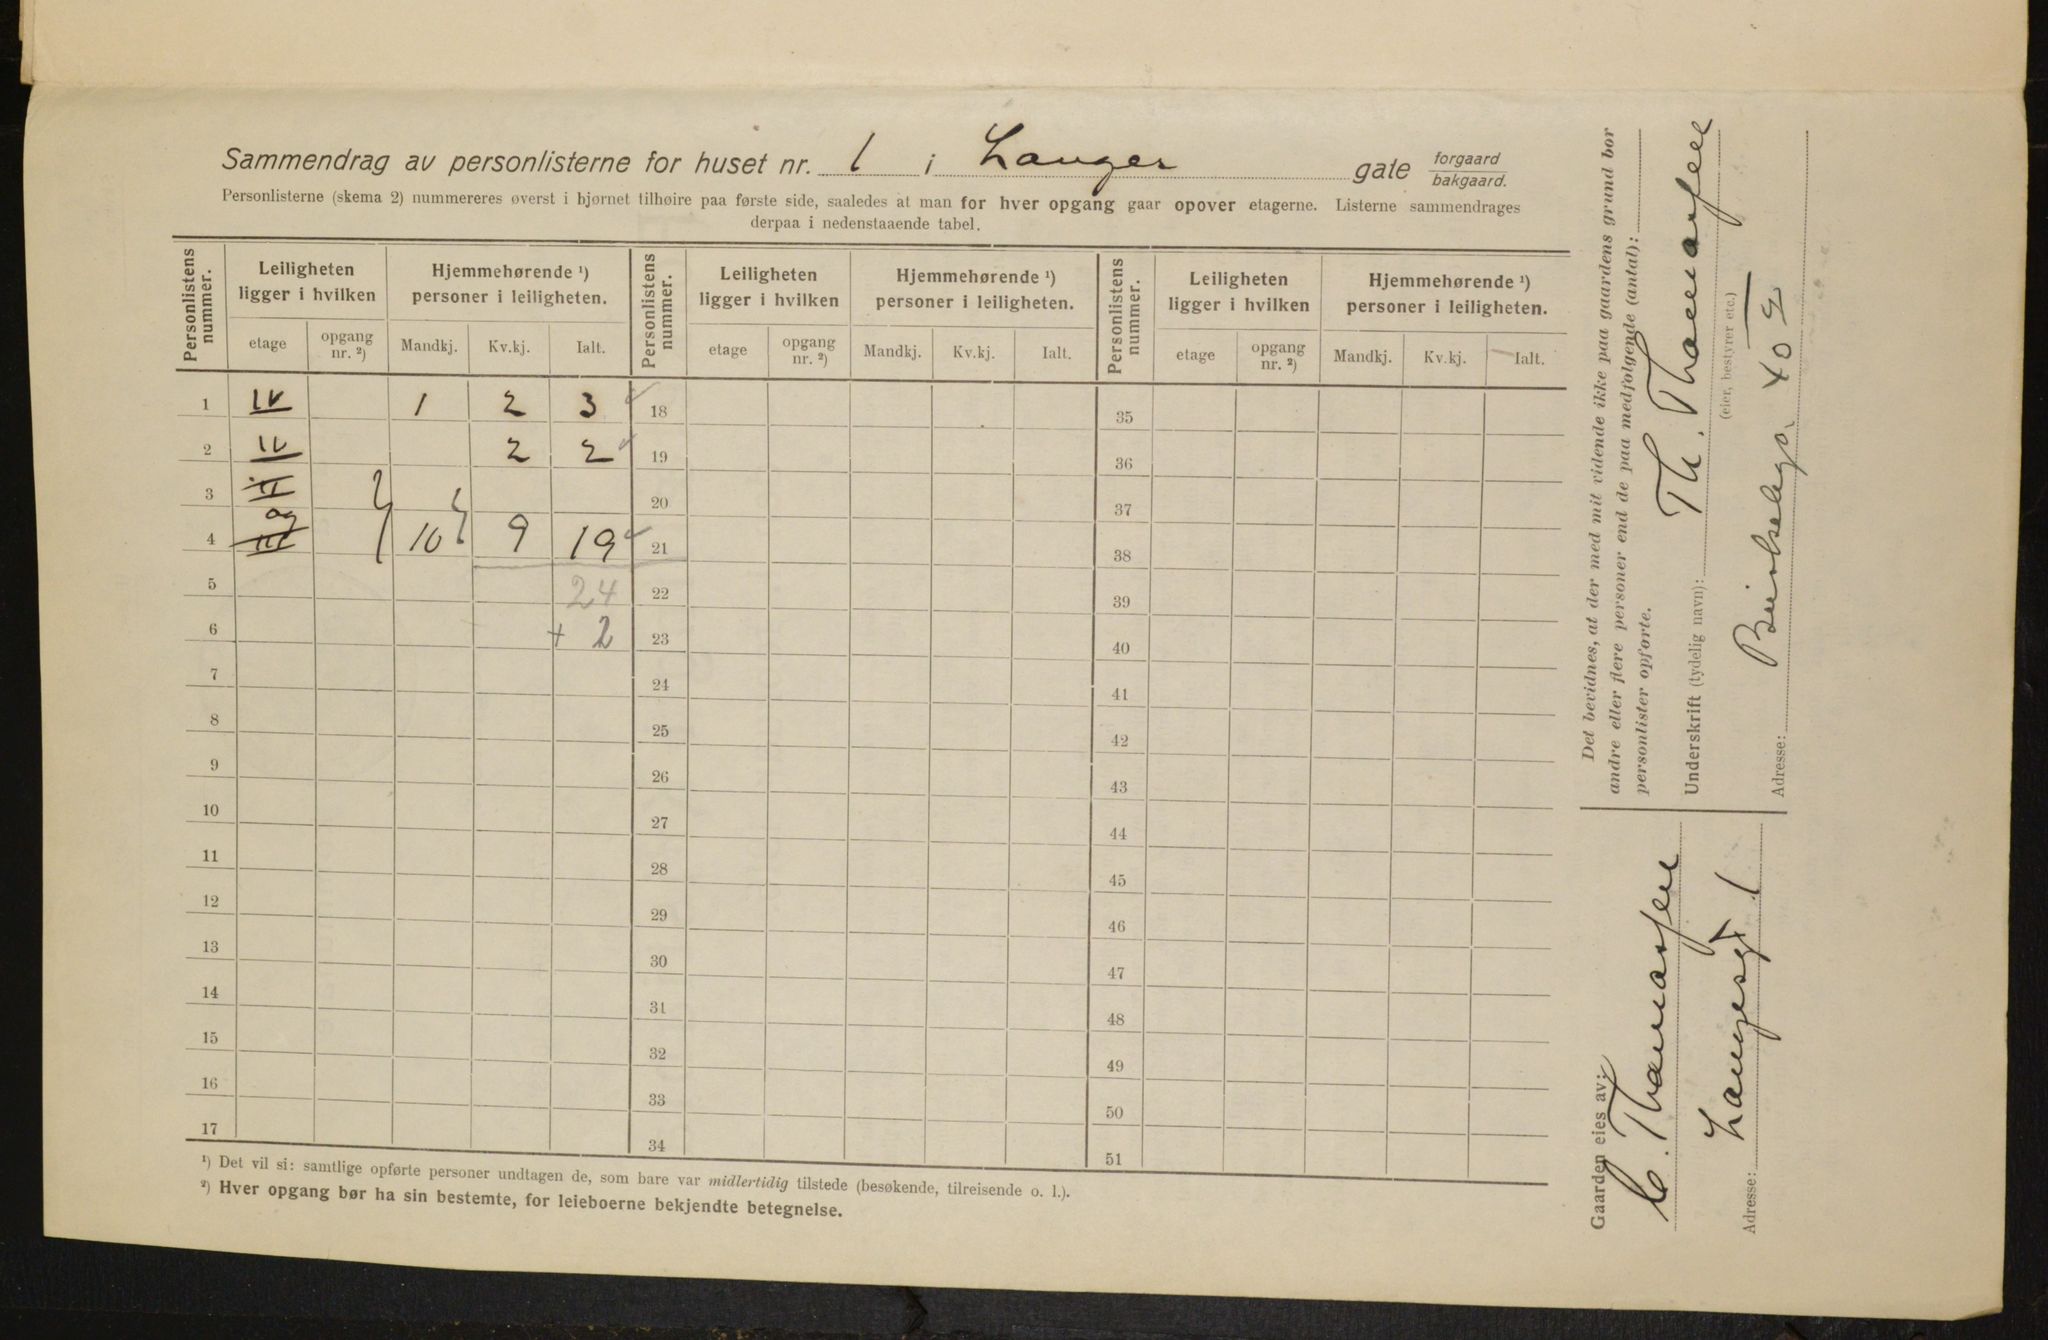 Sammendrag av personlisterne for huset nr. 1 i Langes gate forgaard / bakgaard.
Personlisterne (skema 2) nummereres øverst i hjørnet tilhøire paa første side, saaledes at man for hver opgang gaar opover etagerne. Listerne sammendrages
derpaa i nedenstaaende tabel.
Personlistens nummer. Leiligheten ligger i hvilken Hjemmehørende ¹) personer i leiligheten. Personlistens nummer. Leiligheten ligger i hvilken Hjemmehørende ¹) personer i leiligheten. Personlistens nummer. Leiligheten ligger i hvilken Hjemmehørende ¹) personer i leiligheten.
etage opgang nr. ²) Mandkj. Kv.kj. Ialt. etage opgang nr. ²) Mandkj. Kv.kj. Ialt. etage opgang nr. ²) Mandkj. Kv.kj. Ialt.
1 IV 1 2 3 18 35
2 IV 2 2 19 36
3 II 20 37
4 og III 10 9 19 21 38
5 24 22 39
6 + 2 23 40
7 24 41
8 25 42
9 26 43
10 27 44
11 28 45
12 29 46
13 30 47
14 31 48
15 32 49
16 33 50
17 34 51
¹) Det vil si: samtlige opførte personer undtagen de, som bare var midlertidig tilstede (besøkende, tilreisende o. l.).
²) Hver opgang bør ha sin bestemte, for leieboerne bekjendte betegnelse.
Det bevidnes, at der med mit vidende ikke paa gaardens grund bor
andre eller flere personer end de paa medfølgende (antal):
personlister opførte.
Underskrift (tydelig navn): Th. Thomassen
(eier, bestyrer etc.)
Adresse: 40
Gaarden eies av:
C. Thomassen
Adresse: Langesgt 1